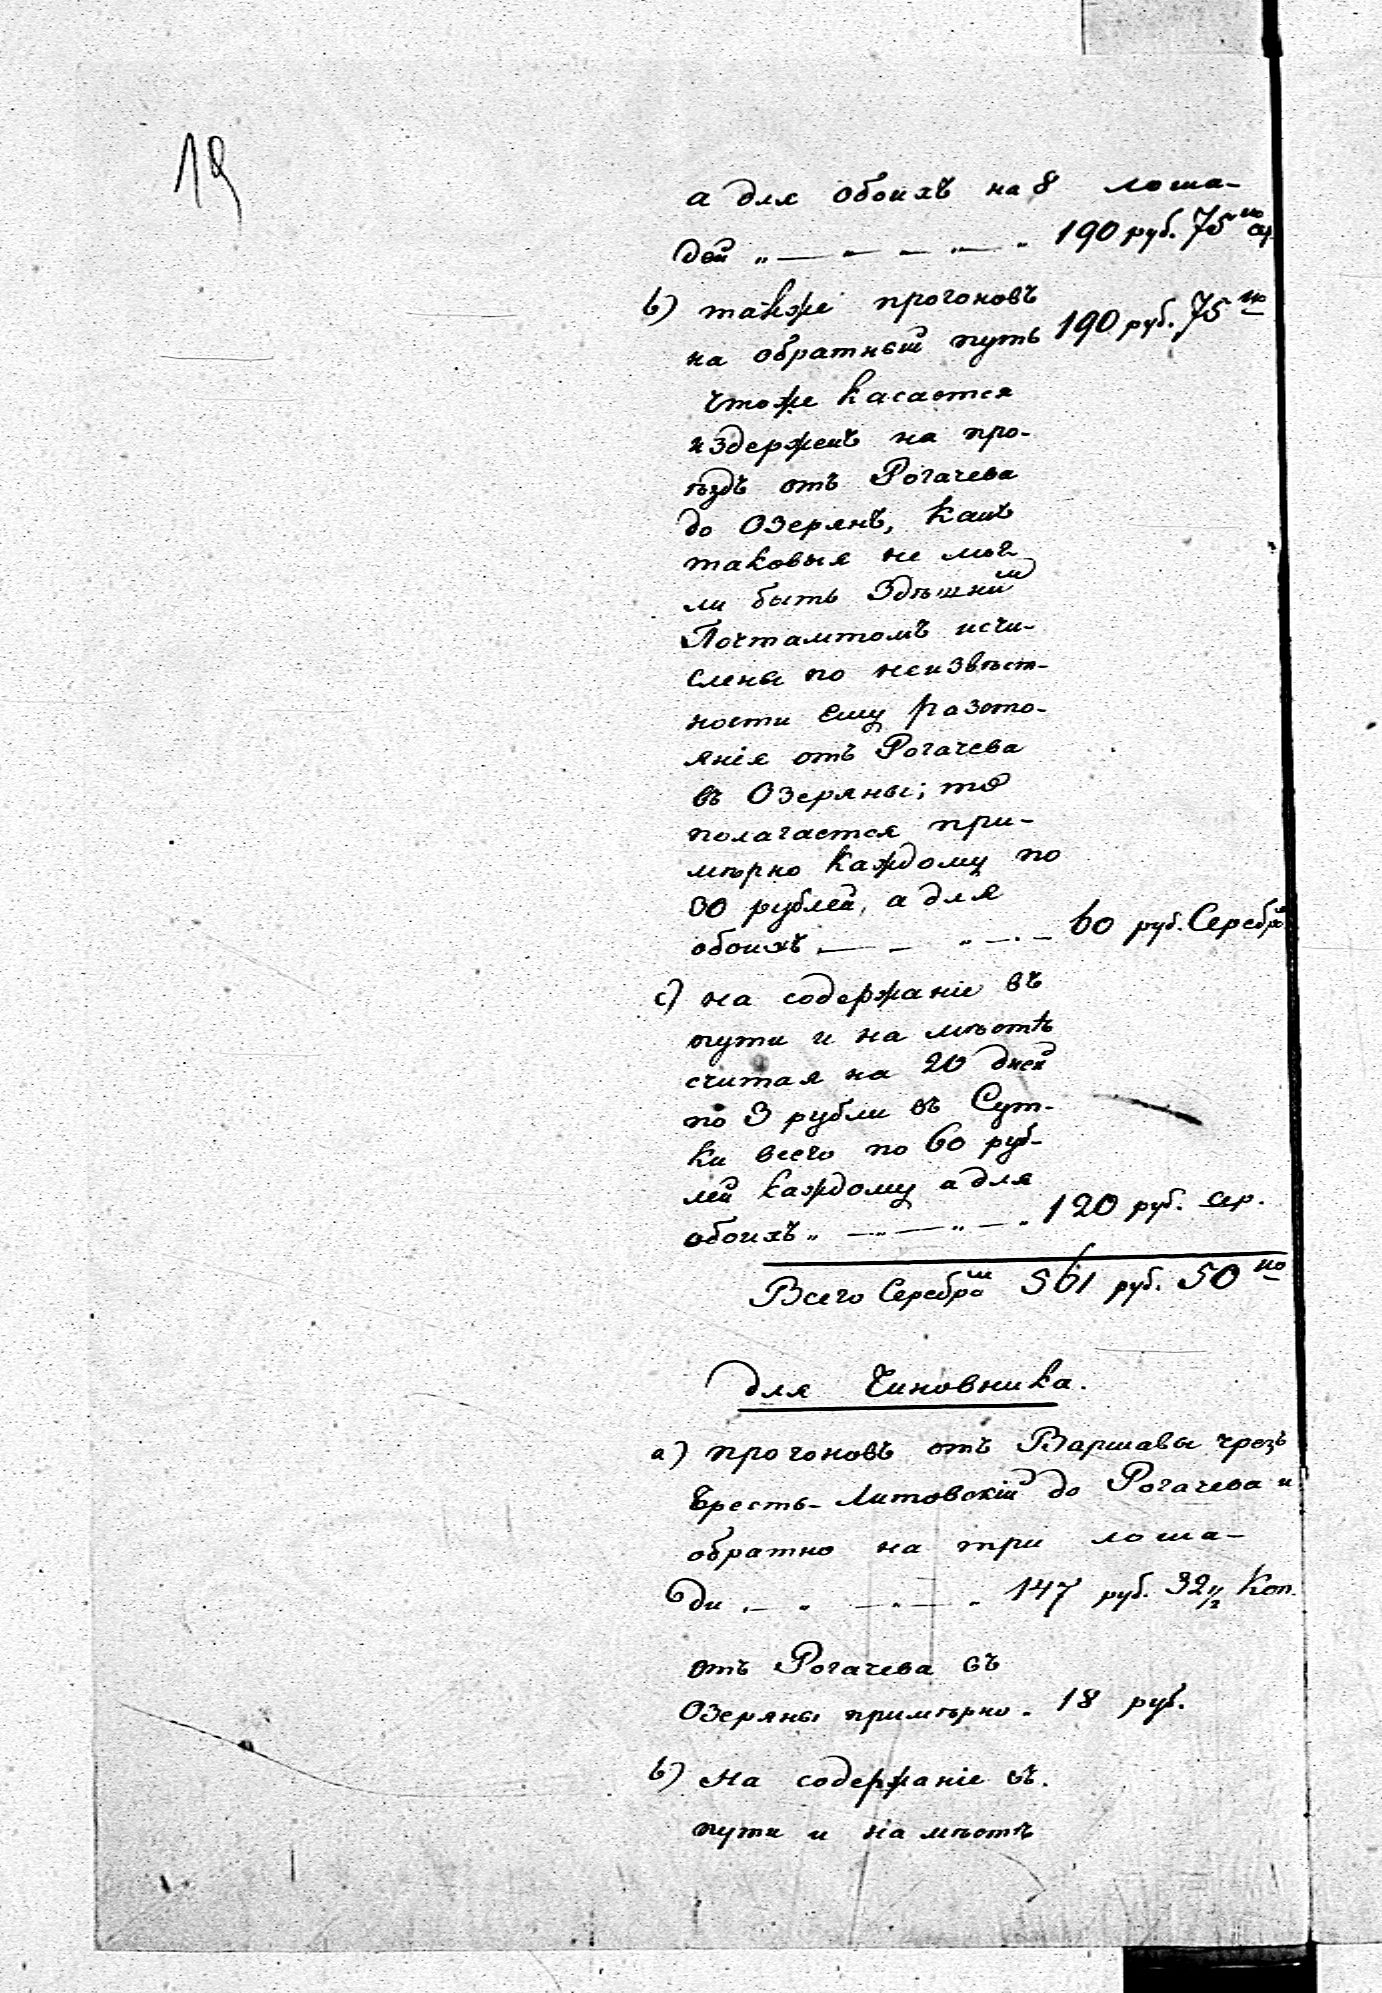 19
а для обоихъ на 8 лоша-
дей „ — „ — „ — „ 190 руб. 75 ко
b) также прогоновъ
на обратный путь 190 руб. 75 ко
Чтоже касается
издержекъ на про-
ѣздъ отъ Рогачева
до Озерянъ, какъ
таковыя не мог
ли быть Здѣшним
Почтамтомъ исчи-
слены по неизвѣст-
ности ему разсто-
янія отъ Рогачева
въ Озеряны; то
полагается при-
мѣрно каждому по
30 рублей, а для
обоихъ — — „ — 60 руб. Серебр
c) на содержаніе въ
пути и на мѣстѣ
считая на 20 дней
по 3 рубли въ Сут-
ки всего по 60 руб-
лей каждому а для
обоихъ „ — „ — „ — „ 120 руб. сер.
Всего Серебром 561 руб. 50 ко
для Чиновника.
a) прогоновъ отъ Варшавы чрезъ
Бресть-Литовскій до Рогачева и
обратно на три лоша-
ди — „ — „ — „ 147 руб. 32 1/2 Коп.
отъ Рогачева въ
Озеряны примѣрно - 18 руб.
b) На содержаніе въ
пути и на мѣстѣ